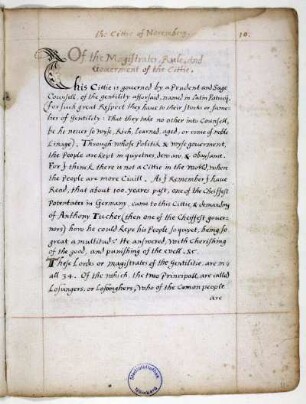 The Cittie of Noremberg. 10.
Of the Magistrates, Rule, and
Government of the Cittie.
This Cittie is governed by a Prudent and Sage
Counsell, of the gentility aforesaid, named in Latin Patricij,
for such great Respect they have in their Stocks or fami-
lier of Gentility: That they take no other into Counsell,
be he never so wyse, Rich, learned, aged, or come of noble
Linage). Through whose Politick & wyse government,
the People are kept in quyetnes, den aw, & obeysans.
For I think there is not a Cittie in the World, where
the People are more Civill. As I Remember I have
Read, that about 100. years past, one of the Cheiffest
Potentates in Germany, came to this Cittie, & demanding
of Anthony Tucher (then one of the Cheiffest gover-
nors) how he could kepe his People so quyet, being so
great a multitud? He answered, with Cherishing
of the good, and punishing of the evell. &c.
These Lords or Magistrates of the Gentilitie, are in
all 34. Of the which, the two Principall are called
Losungers, or Losunghers, who of the Comon people
are
Stadtbibliothek
Nürnberg